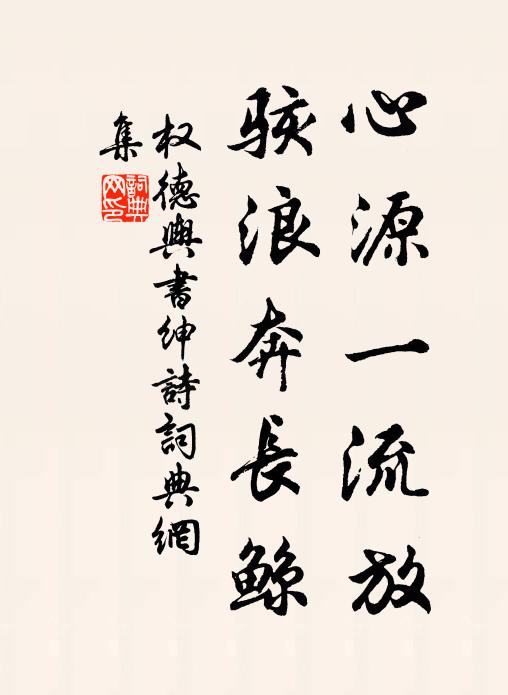 心源一流放
骇浪奔長鲸
权德輿書紳詩詞典網
集
詞典
网印